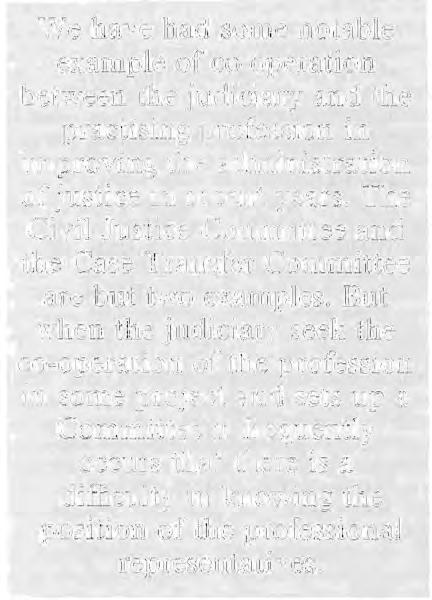 We have had some notable
example of co-operation
between the judiciary and the
practising profession in
improving the administration
of justice in recent years. The
Civil Justice Committee and
the Case Transfer Committee
are but two examples. But
when the judiciary seek the
co-operation of the profession
on some project and sets up a
Committee it frequently
occurs that there is a
difficulty in knowing the
position of the professional
representatives.